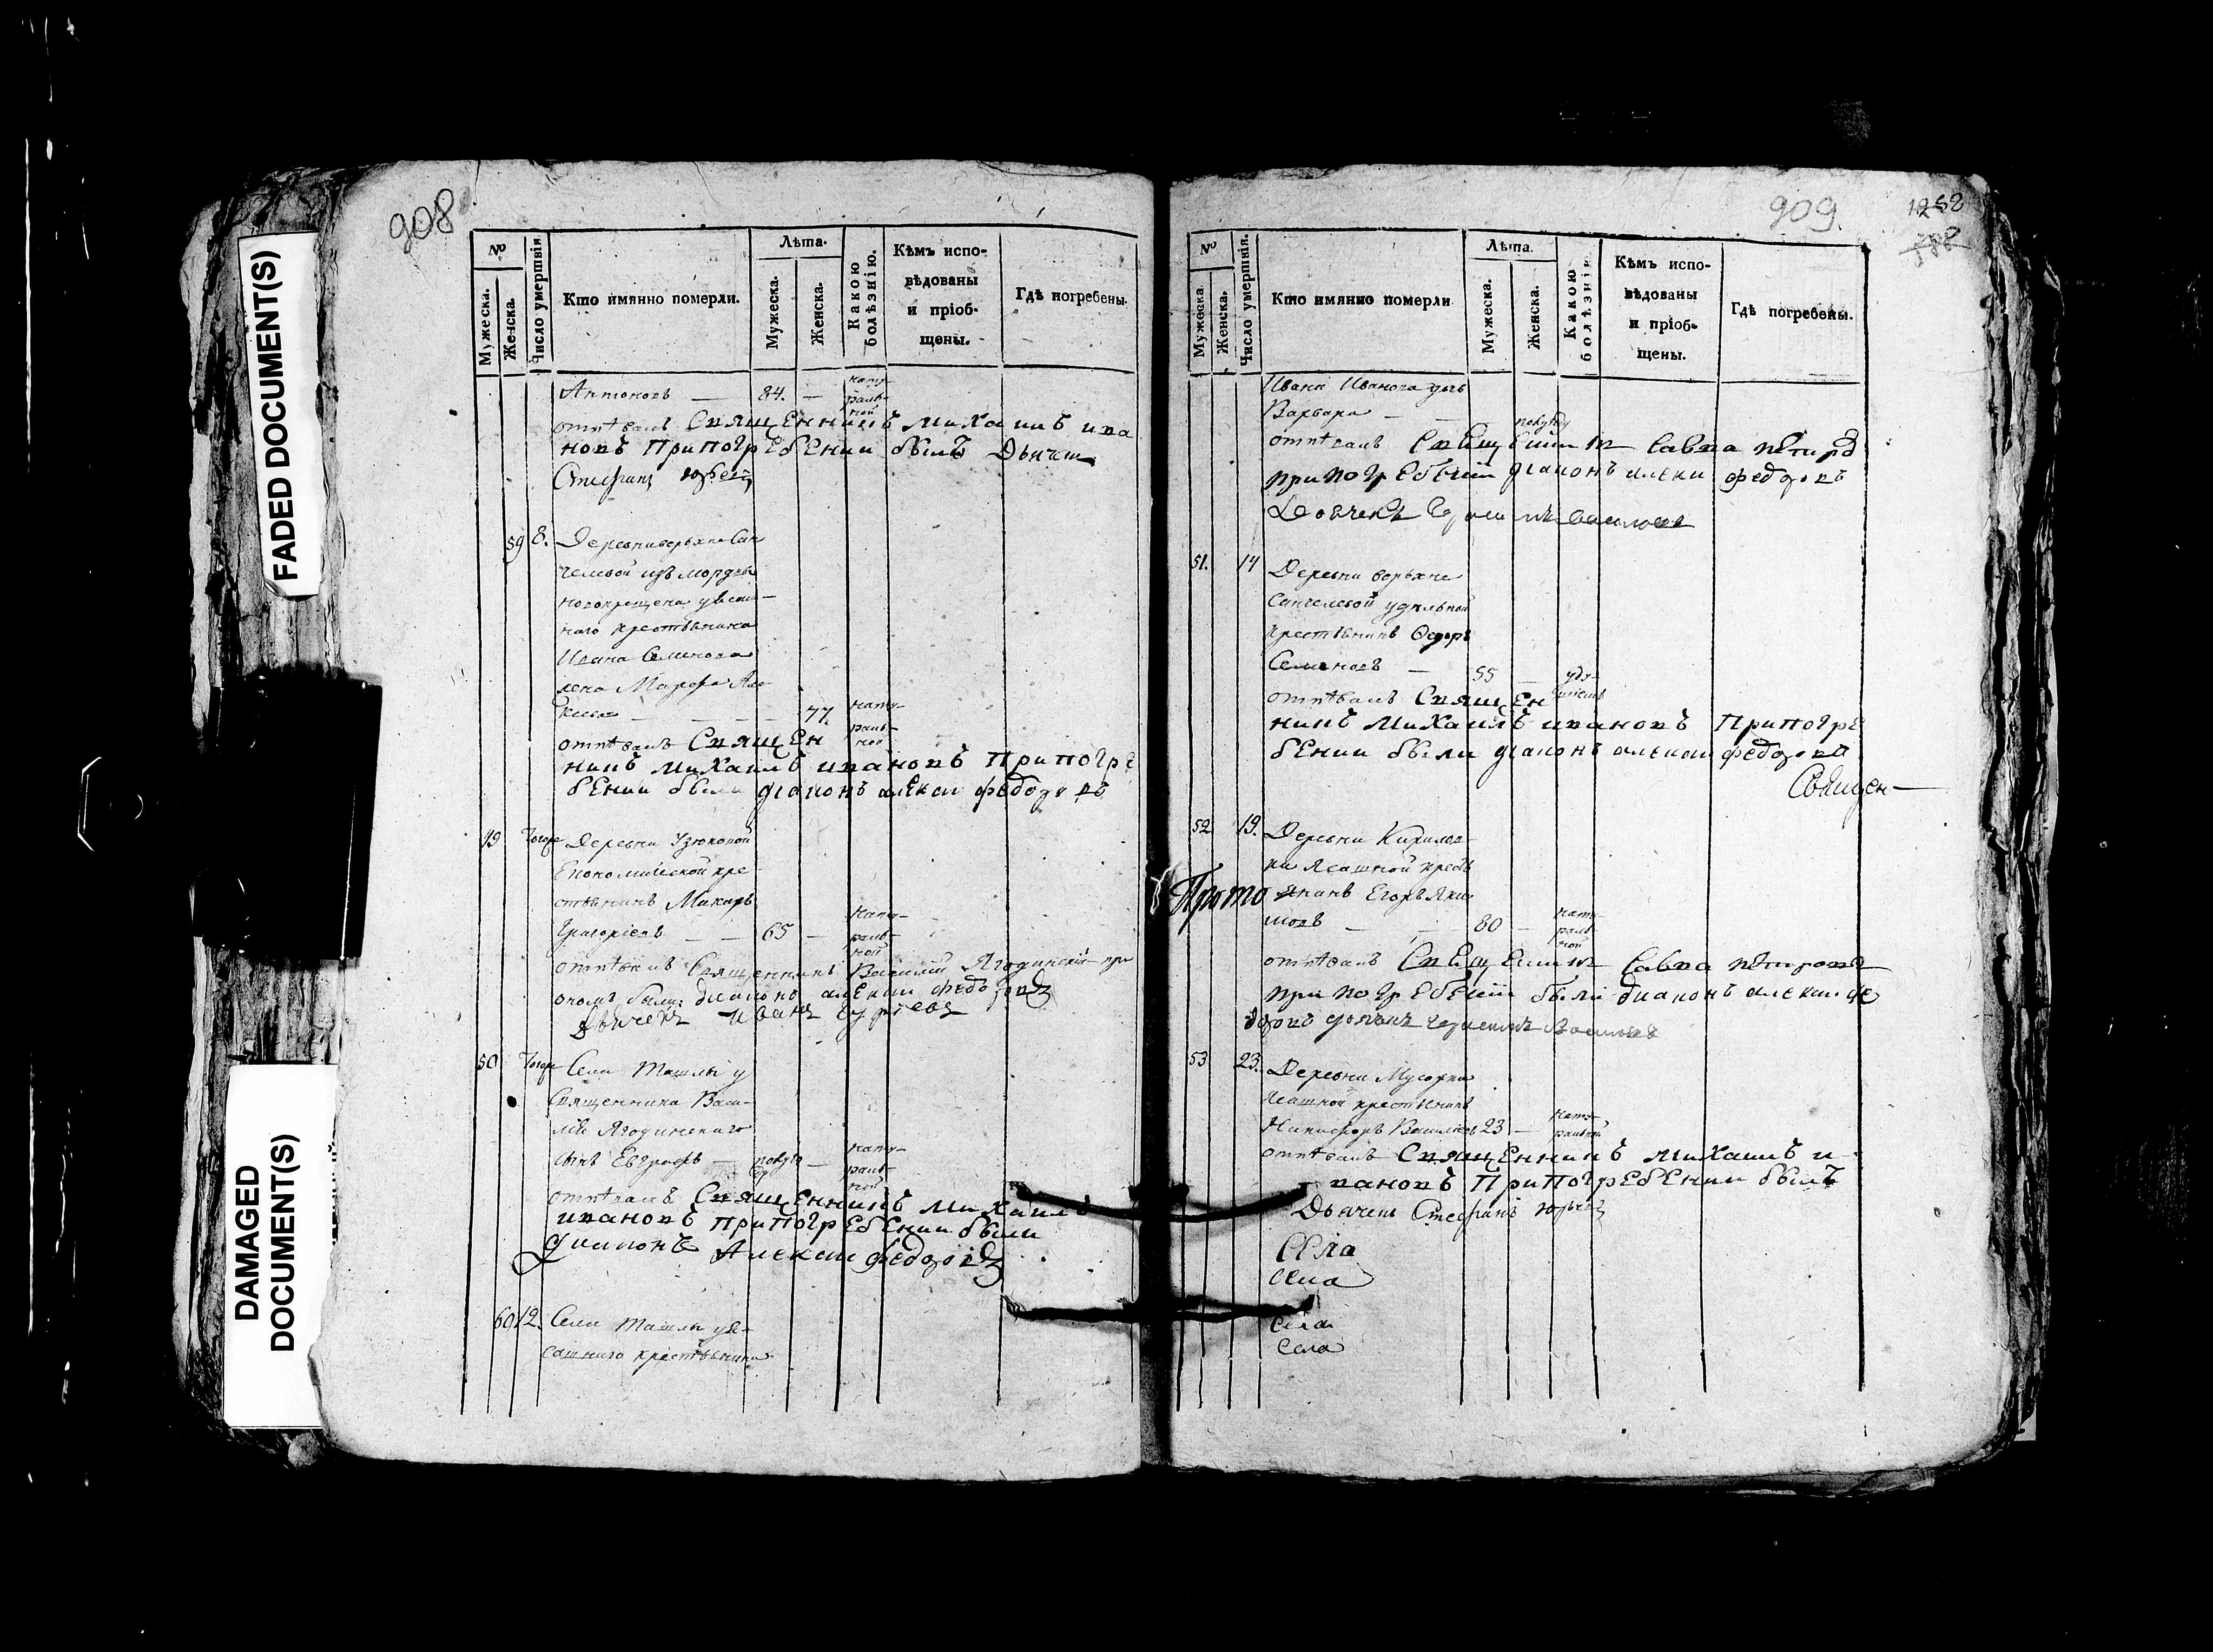 FADED DOCUMENT(S)
DAMAGED
DOCUMENT(S)
908
№
Мужеска.
Женска.
Число умертвія.
Кто имянно померли.
Лѣта.
Мужеска.
Женска.
Какою
болѣзнію.
Кѣмъ испо-
вѣдованы
и пріоб-
щены.
Гдѣ погребены.
Антоновъ — 84. — нату-
раль-
ной
отпѣвалъ Священникъ Михаилъ ива
новъ При погребении былъ Дьячек
Стефанъ Юрьевъ
59 8. Деревни верхне Сан
челеевой изъ мордвы
новокрещена удель-
наго крестьянина
Ивана Семенова
жена Марфа
77. нату-
раль-
ной
отпѣвалъ Священ
никъ Михаилъ ивановъ При погре
бении были диаконъ алекси федоровъ
49 Тогоже Деревни Узюковой
Економической кре-
стьянинъ Макаръ
Григорiевъ — — 65 — нату-
раль-
ной
отпѣвалъ Священникъ Василий Ягодинскiй при
ономъ были диаконъ алекси федоровъ
дьячекъ Иванъ Сергеевъ
50 Тогоже Села Ташлы у
Священника Васи-
лiя Ягодинскаго
сынъ Евграфъ — полуго
ду — нату-
раль-
ной
отпѣвалъ Священникъ Михаилъ
ивановъ при погребении были
диаконъ Алекси федоровъ
60 12. Села Ташлы у я-
сашнаго крестьянина
909
1252
№
Мужеска.
Женска.
Число умертвія.
Кто имянно померли
Лѣта.
Мужеска.
Женска.
Какою
болѣзнію
Кѣмъ испо-
вѣдованы
и пріоб-
щены.
Гдѣ погребены.
Ивана Иванова дочь
Варвара — — полугоду
отпѣвалъ Священник Савва петровъ
при погребении диаконъ алекси федоровъ
51. 14 Деревни верхне
Санчелеевой удѣльной
крестьянинъ Федоръ
Семеновъ — 55 —
отпѣвалъ Священ
никъ Михаилъ ивановъ При погре
бении были диаконъ алекси федоровъ
Священ-
52 19. Деревни Кирилов-
ки Ясашной кресть
Прото янинъ Егоръ Яки
мовъ — — 80 — нату-
раль-
ной
отпѣвалъ Священник Савва петровъ
при погребении были диаконъ алекси фе
доровъ
53 23. Деревни Мусорки
ясашной крестьянинъ
Никифоръ Василевъ 23 — нату-
ральной
отпѣвалъ Священникъ Михаилъ и
вановъ При Погребении былъ
Дьячекъ Стефанъ Юрьевъ
Села
села
села
села